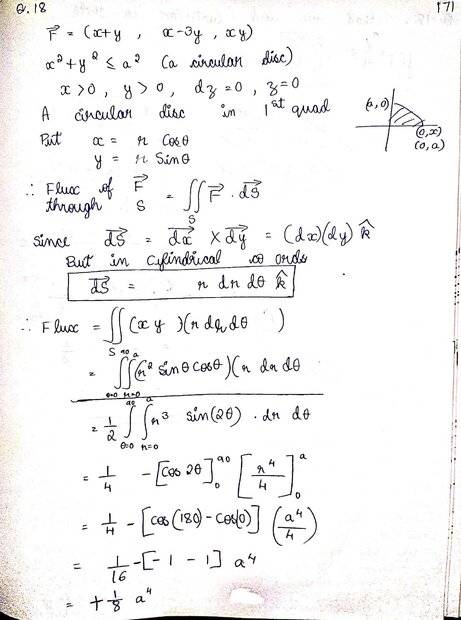 Q.18
171
F⃗ = (x+y , x-3y , xy)
x² + y² ≤ a² (a circular disc)
x > 0 , y > 0 , dz = 0 , z = 0
A circular disc in 1st quad
(a, 0)
(0, x)
(0, a)
Put x = r Cosθ
y = r Sinθ
∴ Flux of F⃗ through S = ∬_S F⃗ · dS⃗
since dS⃗ = dx⃗ × dy⃗ = (dx)(dy) k̂
But in cylindrical co ords
dS⃗ = r dr dθ k̂
∴ Flux = ∬_S (xy)(r dr dθ )
= ∫_{θ=0}^{90} ∫_{r=0}^{a} (r² sinθ cosθ)(r dr dθ
= 1/2 ∫_{θ=0}^{90} ∫_{r=0}^{a} r³ sin(2θ) · dr dθ
= 1/4 -[cos 2θ]_0^{90} [r⁴/4]_0^a
= 1/4 -[cos(180) - cos(0)] (a⁴/4)
= 1/16 -[-1 - 1] a⁴
= +1/8 a⁴